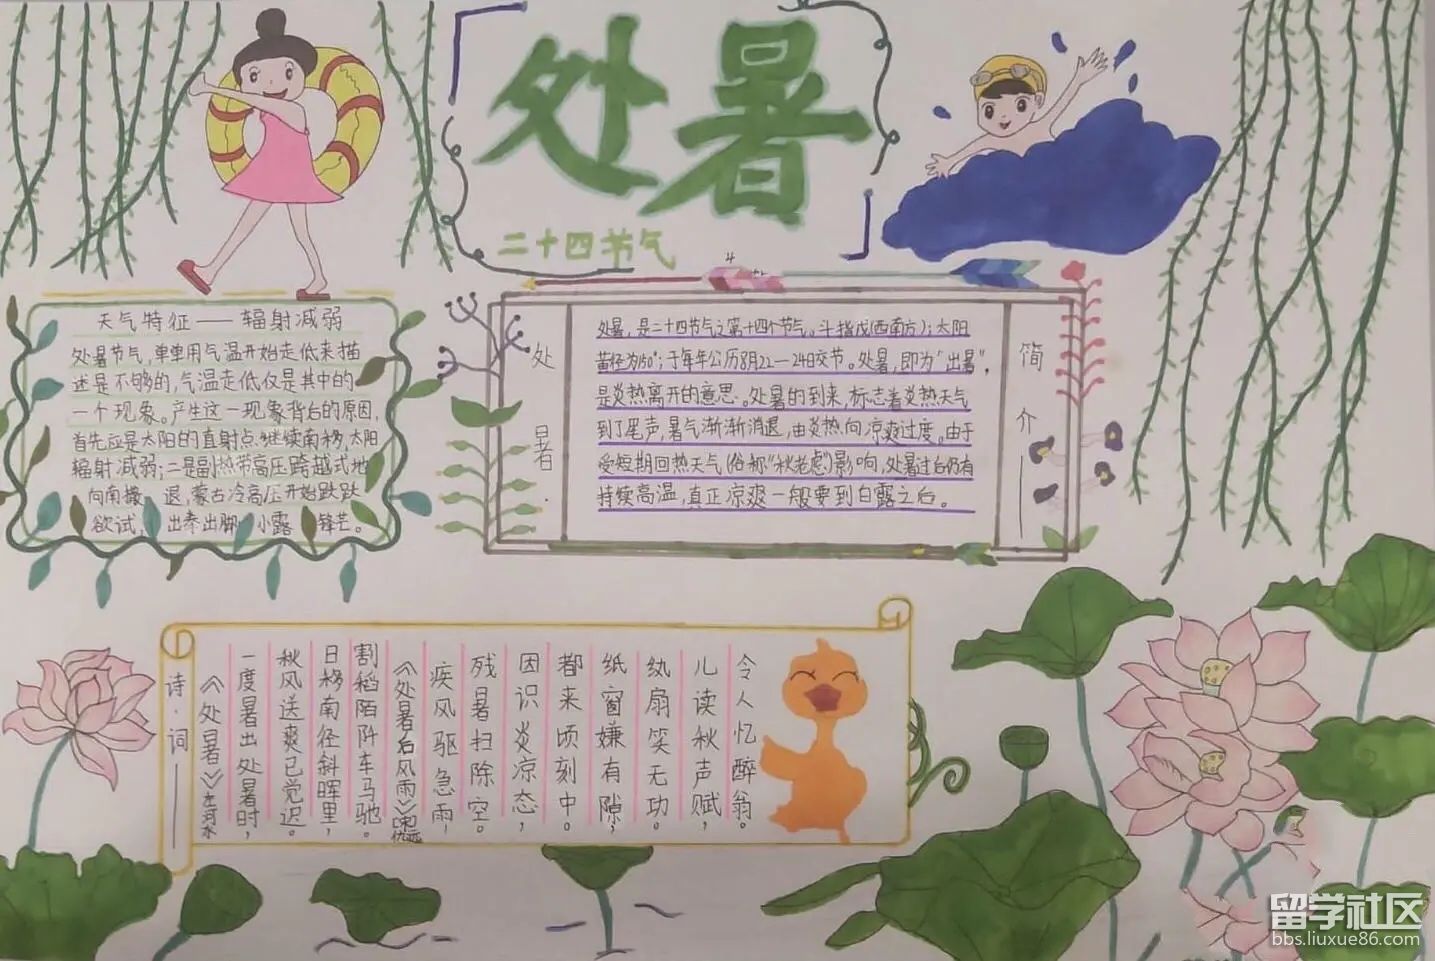 处暑
二十四节气
天气特征——辐射减弱
处暑节气,单单用气温开始走低来描
述是不够的,气温走低仅是其中的
一个现象。产生这一现象背后的原因,
首先应是太阳的直射点继续南移,太阳
辐射减弱;二是副热带高压跨越式地
向南撤退,蒙古冷高压开始跃跃
欲试,出拳出脚,小露锋芒。
处暑·
处暑,是二十四节气之第十四个节气。斗指戊(西南方);太阳
黄径为150°;于每年公历8月22—24日交节。处暑,即为“出暑”,
是炎热离开的意思。处暑的到来,标志着炎热天气
到了尾声,暑气渐渐消退,由炎热向凉爽过度。由于
受短期回热天气(俗称“秋老虎)影响,处暑过后仍有
持续高温,真正凉爽一般要到白露之后。
简介——
诗·词——
《处暑》左河水
一度暑出处暑时,
秋风送爽已觉迟。
日移南径斜晖里,
割稻陌阡车马驰。
《处暑后风雨》
疾风驱急雨,
残暑扫除空。
因识炎凉态,
都来顷刻中。
纸窗嫌有隙,
纨扇笑无功。
儿读秋声赋,
令人忆醉翁。
留学社区
bbs.liuxue86.com